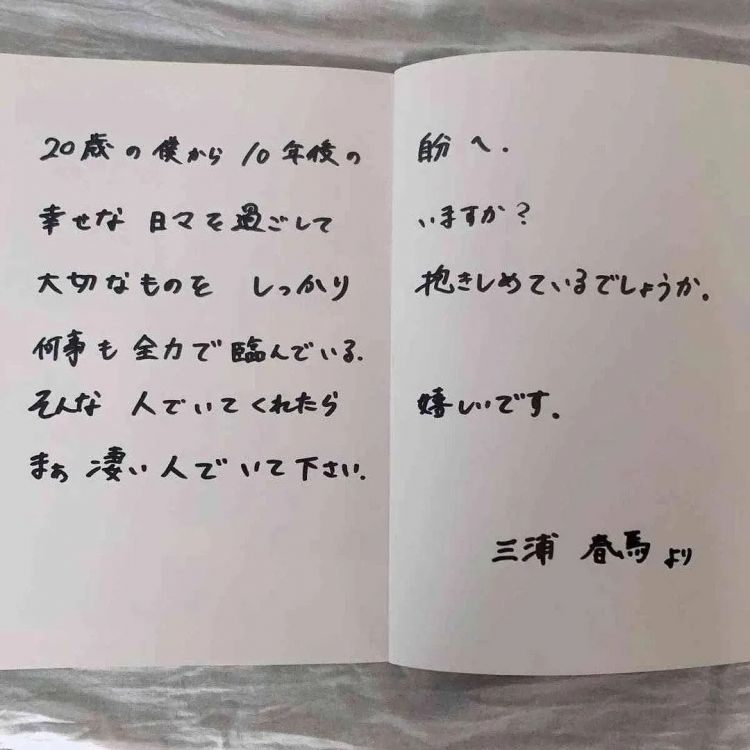 20歳の僕から10年後の自分へ.
幸せな日々を過ごしていますか?
大切なものをしっかり抱きしめているでしょうか。
何事も全力で臨んでいる.
そんな人でいてくれたら嬉しいです。
まぁ凄い人でいて下さい.
三浦 春馬より